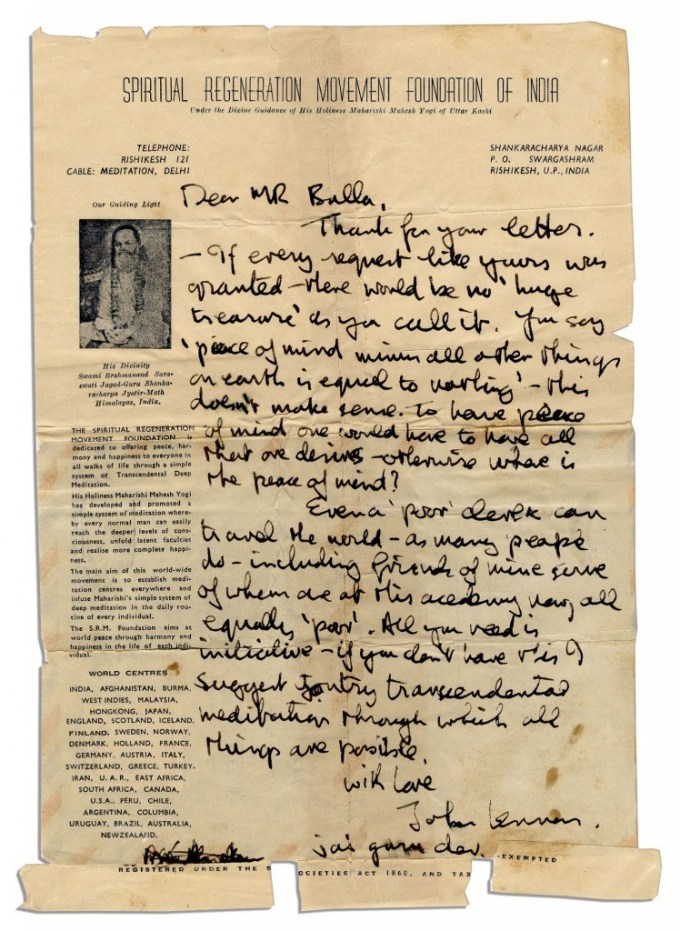 SPIRITUAL REGENERATION MOVEMENT FOUNDATION OF INDIA
Under the Divine Guidance of His Holiness Maharishi Mahesh Yogi of Uttar Kashi
TELEPHONE:
RISHIKESH 121
CABLE: MEDITATION, DELHI
SHANKARACHARYA NAGAR
P. O. SWARGASHRAM
RISHIKESH, U.P., INDIA
Our Guiding Light
His Divinity
Swami Brahmanand Sara-
swati Jagad-Guru Shanka-
racharya Jyotir-Math
Himalayas, India.
THE SPIRITUAL REGENERATION
MOVEMENT FOUNDATION is
dedicated to offering peace, har-
mony and happiness to everyone in
all walks of life through a simple
system of Transcendental Deep
Meditation.
His Holiness Maharishi Mahesh Yogi
has developed and promoted a
simple system of meditation where-
by every normal man can easily
reach the deeper levels of cons-
ciousness, unfold latent faculties
and realise more complete happi-
ness.
The main aim of this world-wide
movement is to establish medi-
tation centres everywhere and
infuse Maharishi's simple system of
deep meditation in the daily rou-
tine of every individual.
The S.R.M. Foundation aims at
world peace through harmony and
happiness in the life of each indi-
vidual.
WORLD CENTRES
INDIA, AFGHANISTAN, BURMA,
WEST INDIES, MALAYSIA,
HONGKONG, JAPAN,
ENGLAND, SCOTLAND, ICELAND,
FINLAND, SWEDEN, NORWAY,
DENMARK, HOLLAND, FRANCE,
GERMANY, AUSTRIA, ITALY,
SWITZERLAND, GREECE, TURKEY,
IRAN, U. A. R., EAST AFRICA,
SOUTH AFRICA, CANADA,
U.S.A., PERU, CHILE,
ARGENTINA, COLUMBIA,
URUGUAY, BRAZIL, AUSTRALIA,
NEWZEALAND.
Dear MR Bulla,
Thank for your letter.
- If every request like yours was
granted - there would be no 'huge
treasure' as you call it. You say
'peace of mind minus all other things
on earth is equal to nothing' - this
doesn't make sense. To have peace
of mind one would have to have all
that one desires - otherwise where is
the peace of mind?
Even a 'poor' clerk can
travel the world - as many people
do - including friends of mine some
of whom are at this academy now, all
equally 'poor'. All you need is
initiative - if you don't have this I
suggest you try transcendental
meditation through which all
things are possible.
with love
John Lennon.
jai guru dev.
REGISTERED UNDER THE SOCIETIES ACT 1860, AND TAX -EXEMPTED